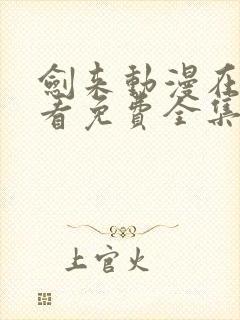 劍来動漫在
看免費全集
上官火